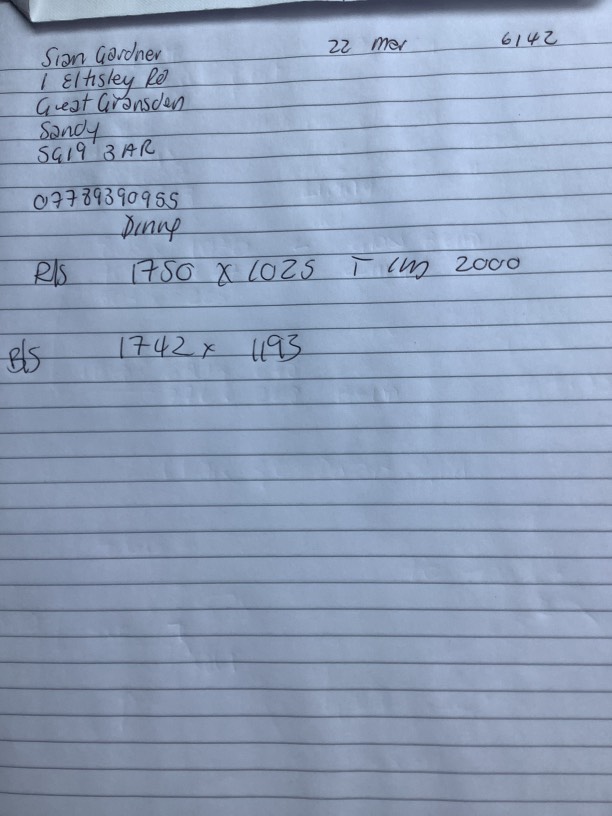 Sian Gardner 22 mar 6142
1 Eltisley Rd
Great Gransden
Sandy
SG19 3AR
07789390955
R/S 1750 x 1025 T 2000
B/S 1742 x 1193